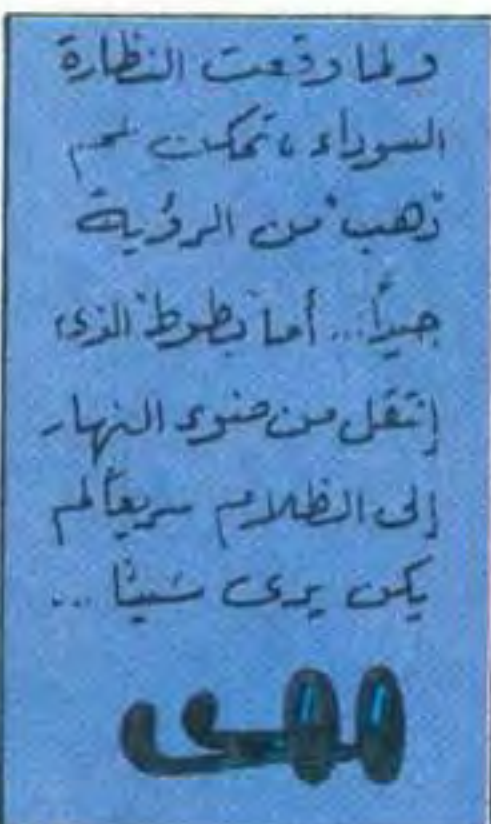 ولما وقعت النظارة
السوداء ، تمكن نجم
ذهب من الرؤية
جيداً... أما بطوط الذي
إنتقل من ضوء النهار
إلى الظلام سريعاً لم
يكن يرى شيئاً ...